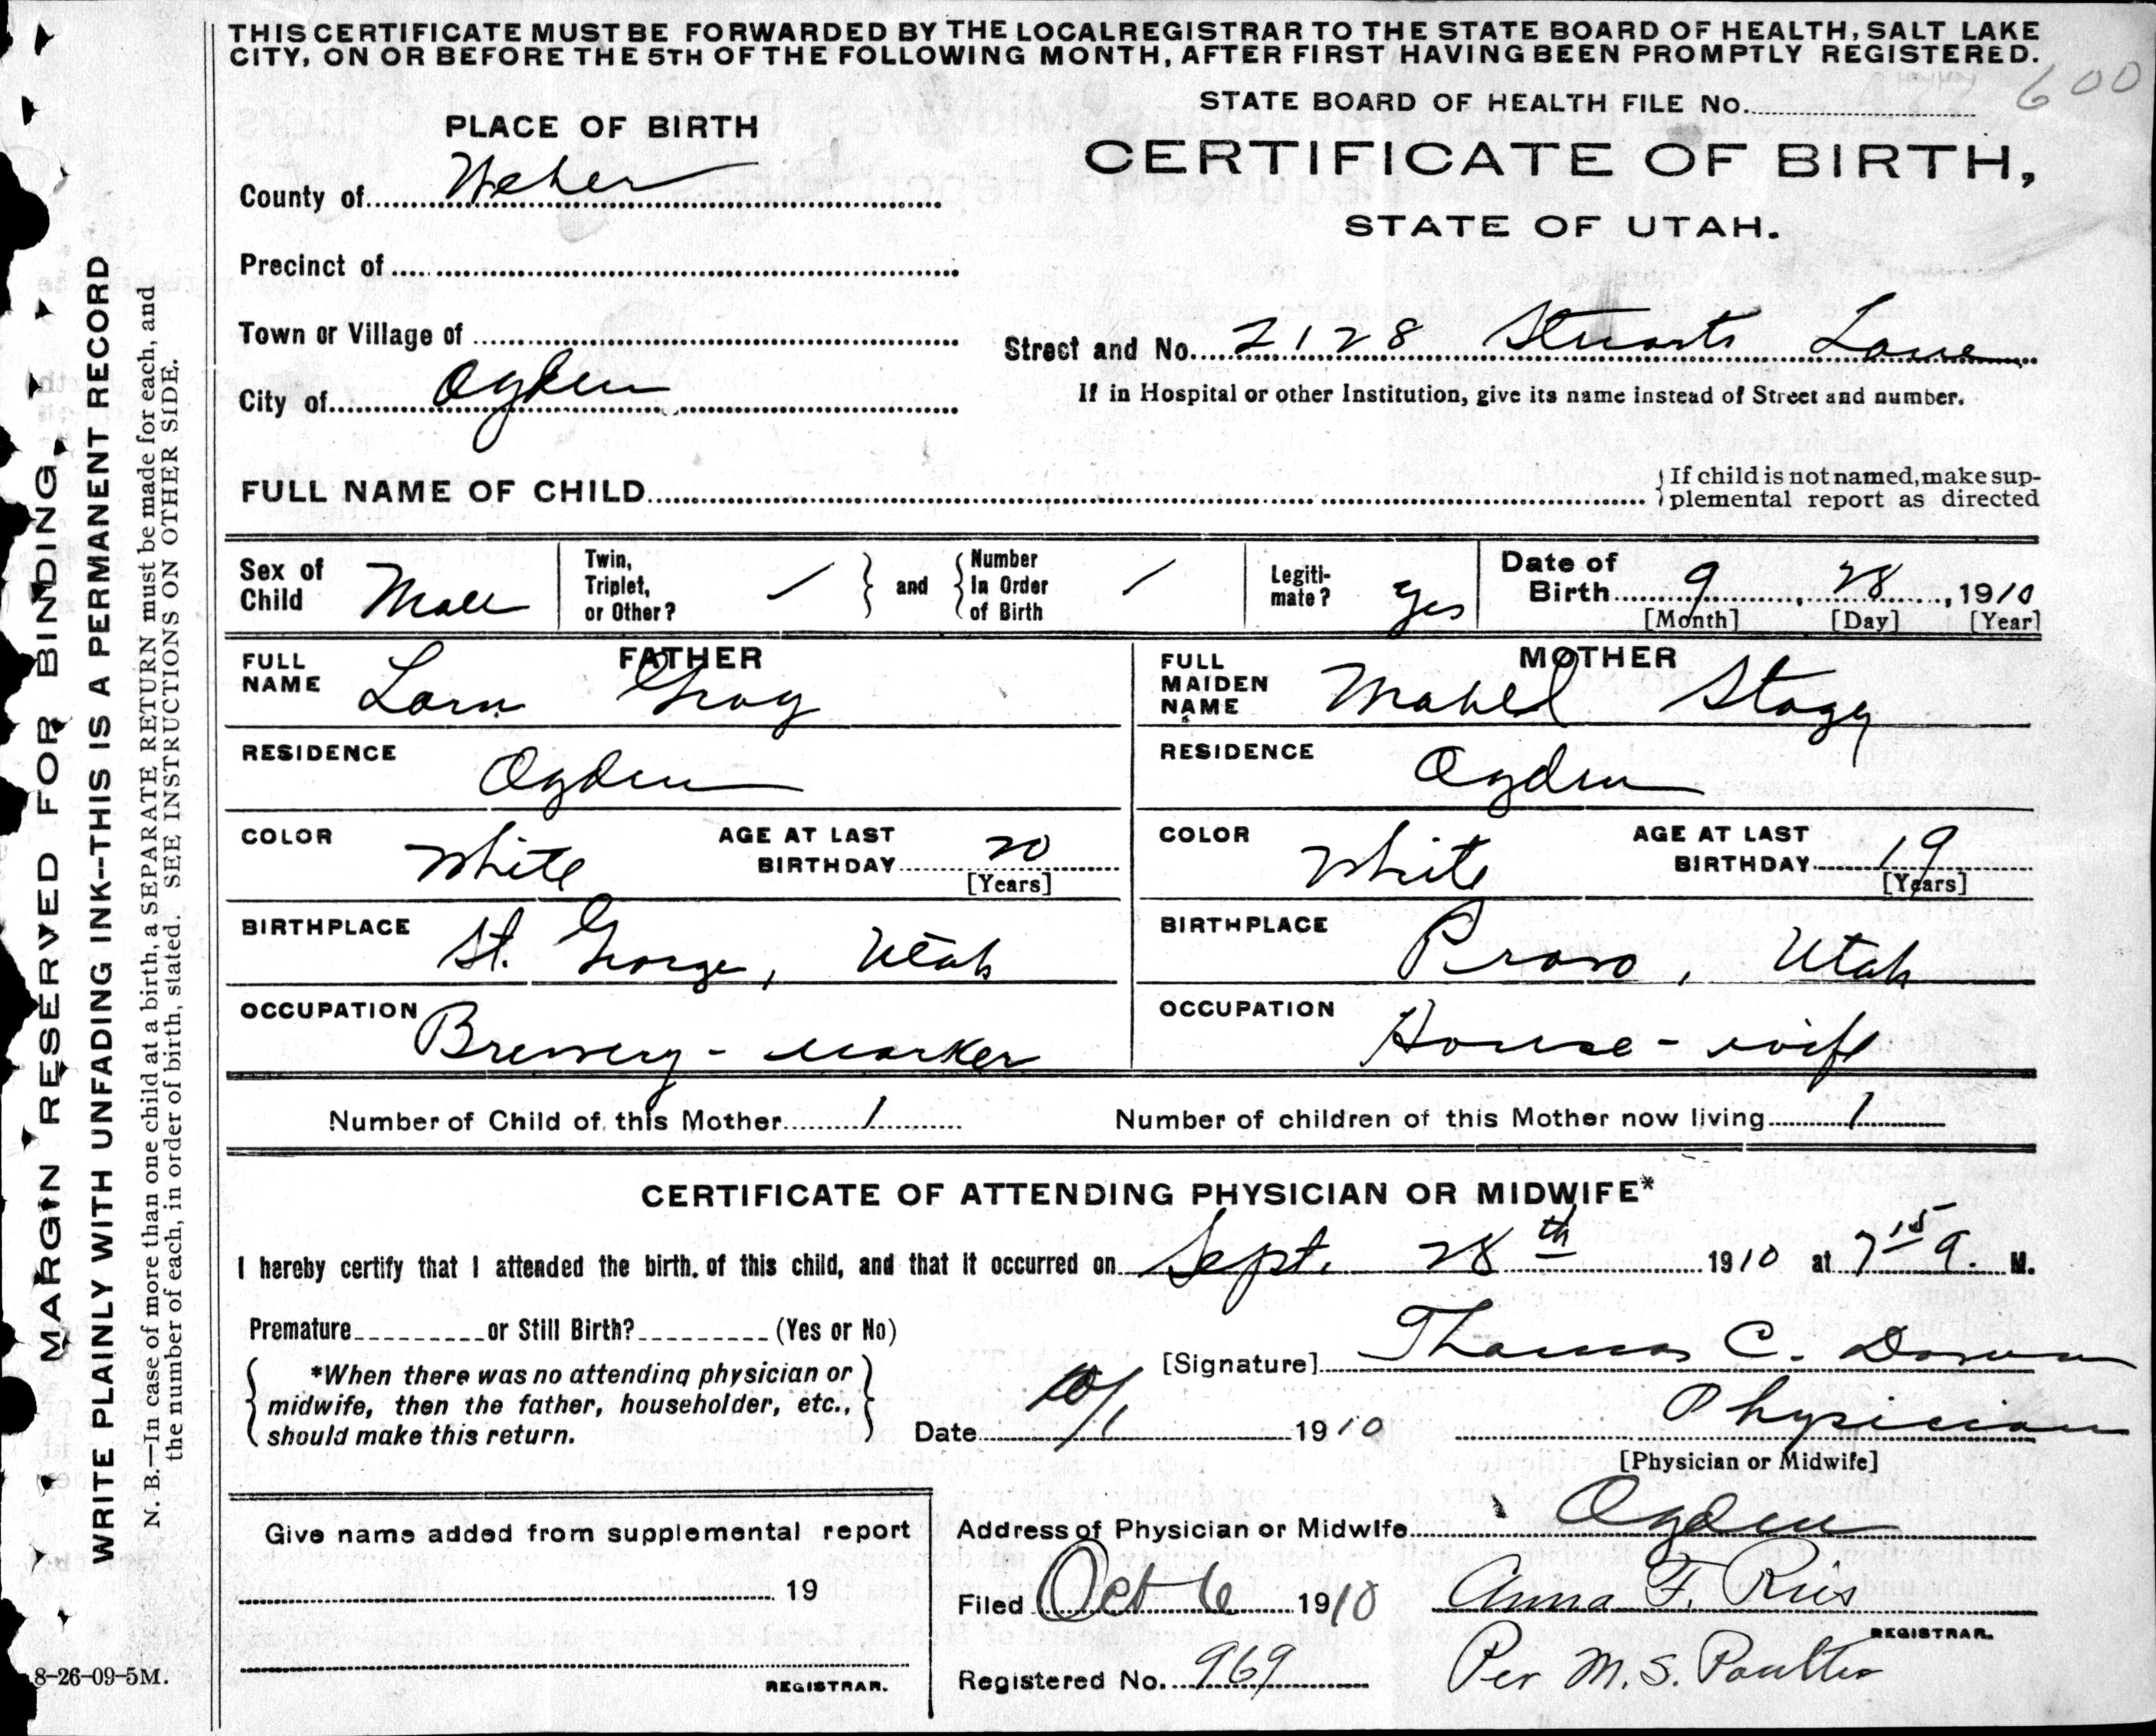 THIS CERTIFICATE MUST BE FORWARDED BY THE LOCAL REGISTRAR TO THE STATE BOARD OF HEALTH, SALT LAKE
CITY, ON OR BEFORE THE 5TH OF THE FOLLOWING MONTH, AFTER FIRST HAVING BEEN PROMPTLY REGISTERED.
600
STATE BOARD OF HEALTH FILE No.
PLACE OF BIRTH
CERTIFICATE OF BIRTH,
STATE OF UTAH.
County of Weber
Precinct of
Town or Village of
Street and No. 2128 Stuarts Lane
City of Ogden
If in Hospital or other Institution, give its name instead of Street and number.
FULL NAME OF CHILD
If child is not named, make sup-
plemental report as directed
Sex of Child Male
Twin, Triplet, or Other? /
and
Number In Order of Birth /
Legiti-mate? yes
Date of Birth 9, 28, 1910
[Month] [Day] [Year]
FATHER
FULL NAME Lorn Gray
RESIDENCE Ogden
COLOR White
AGE AT LAST BIRTHDAY 20
[Years]
BIRTHPLACE St. George, Utah
OCCUPATION Brewery - worker
MOTHER
FULL MAIDEN NAME Mabel Stagg
RESIDENCE Ogden
COLOR White
AGE AT LAST BIRTHDAY 19
[Years]
BIRTHPLACE Provo, Utah
OCCUPATION House - wife
Number of Child of this Mother 1
Number of children of this Mother now living 1
CERTIFICATE OF ATTENDING PHYSICIAN OR MIDWIFE*
I hereby certify that I attended the birth of this child, and that it occurred on Sept. 28th 1910 at 7 15 a. M.
Premature or Still Birth? (Yes or No)
*When there was no attending physician or
midwife, then the father, householder, etc.,
should make this return.
[Signature] Thomas C.
Date 10/1 1910
Physician
[Physician or Midwife]
Give name added from supplemental report
19
REGISTRAR.
Address of Physician or Midwife Ogden
Filed Oct 6 1910
Anna F. Ries
REGISTRAR.
Registered No. 969
Per M. S. Poulter
MARGIN RESERVED FOR BINDING.
WRITE PLAINLY WITH UNFADING INK--THIS IS A PERMANENT RECORD
N. B.—In case of more than one child at a birth, a SEPARATE RETURN must be made for each, and
the number of each, in order of birth, stated. SEE INSTRUCTIONS ON OTHER SIDE.
8-26-09-5M.